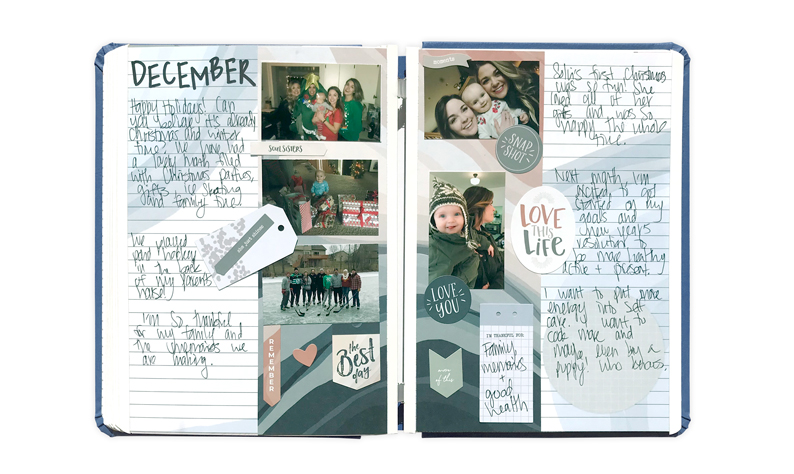 DECEMBER
Happy Holidays! Can
you believe it's already
Christmas and winter
time? We have had
a lovely month filled
with Christmas parties,
gifts, ice skating
and family time.
We played
pond hockey
in the back
of my parents
house!
I'm so thankful
for my family and
the memories we
are making.
SOUL SISTERS
REMEMBER
the
Best
day
SNAP
SHOT
LOVE
YOU
more
of this
I'M THANKFUL FOR
Family
memories
+
good
health
LOVE
THIS
LIFE
first Christmas
was so fun! She
loved all of her
gifts and was so
happy the whole
time.
Next month, I'm
excited to get
started on my
goals and
new years
resolution to
be more healthy
active + present.
I want to put more
energy into self
care. I want to
cook more and
maybe even buy a
puppy! Who knows.